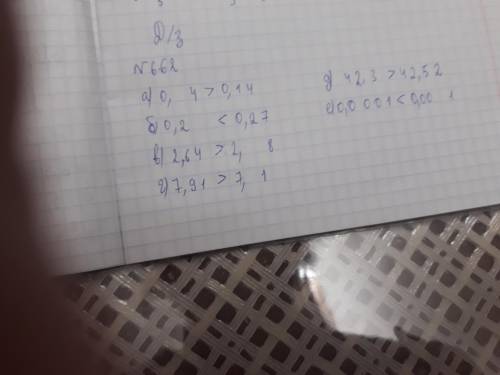 Д/з
№662
а) 0, 4 > 0,14
б) 0,2 < 0,27
в) 2,64 > 2, 8
г) 7,91 > 7, 1
д) 42,3 > 42,52
е) 0,0001 < 0,00 1